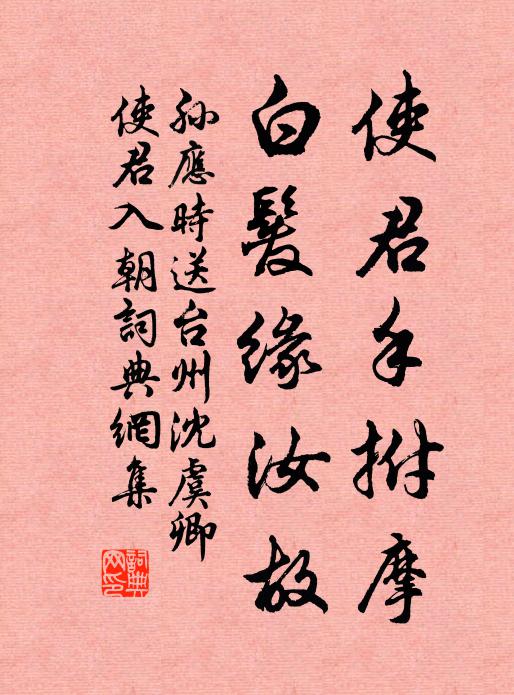 使君手拊摩
白髮緣汝故
孫應時送台州沈虞卿
使君入朝詞典網集
詞典網印